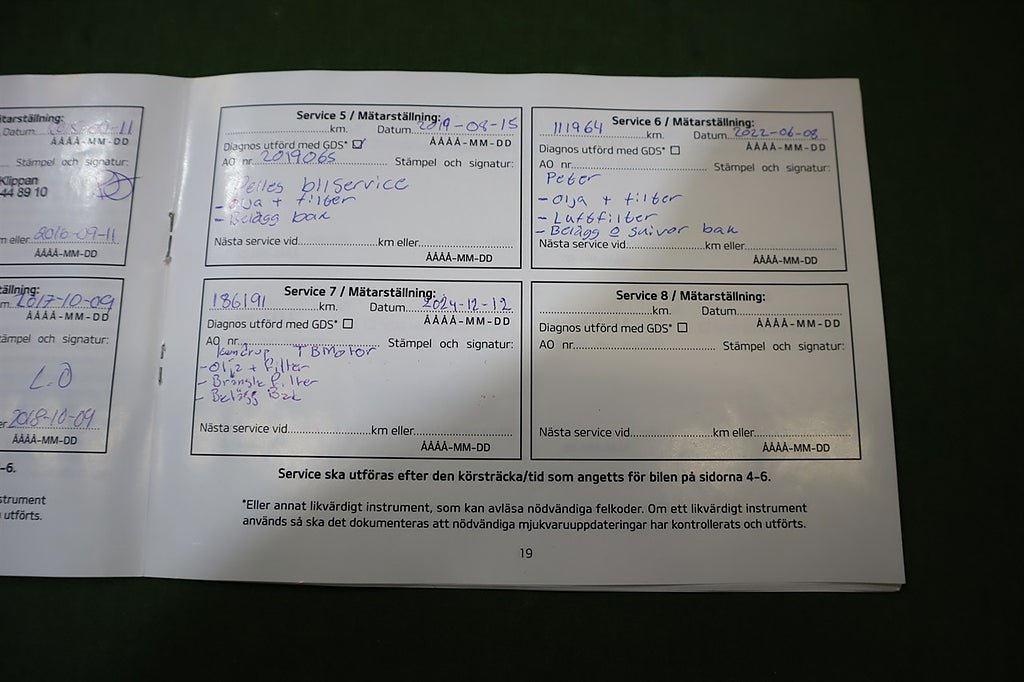 itarställning:
Datum
ÅÅÅÅ-MM-DD
Stämpel och signatur:
Klippan
44 89 10
m eller 2016-09-11
ÅÅÅÅ-MM-DD
tällning:
m. 2017-10-09
ÅÅÅÅ-MM-DD
ämpel och signatur:
L.O
er 2018-10-09
ÅÅÅÅ-MM-DD
-6.
strument
utförts.
Service 5 / Mätarställning:
km. Datum 2019-08-15
Diagnos utförd med GDS* ÅÅÅÅ-MM-DD
AO nr. 2019065 Stämpel och signatur:
Pelles bilservice
- olja + filter
- Belägg bak
Nästa service vid km eller
ÅÅÅÅ-MM-DD
Service 6 / Mätarställning:
111964 km. Datum 2022-06-08
Diagnos utförd med GDS* ÅÅÅÅ-MM-DD
AO nr. Stämpel och signatur:
Peter
- olja + filter
- Luftfilter
- Belägg o skivor bak
Nästa service vid km eller
ÅÅÅÅ-MM-DD
Service 7 / Mätarställning:
186191 km. Datum 2024-12-12
Diagnos utförd med GDS* ÅÅÅÅ-MM-DD
AO nr. Stämpel och signatur:
TBMotor
- Olja + filter
- Bränsle filter
- Belägg Bak
Nästa service vid km eller
ÅÅÅÅ-MM-DD
Service 8 / Mätarställning:
km. Datum
Diagnos utförd med GDS* ÅÅÅÅ-MM-DD
AO nr. Stämpel och signatur:
Nästa service vid km eller
ÅÅÅÅ-MM-DD
Service ska utföras efter den körsträcka/tid som angetts för bilen på sidorna 4-6.
*Eller annat likvärdigt instrument, som kan avläsa nödvändiga felkoder. Om ett likvärdigt instrument
används så ska det dokumenteras att nödvändiga mjukvaruuppdateringar har kontrollerats och utförts.
19